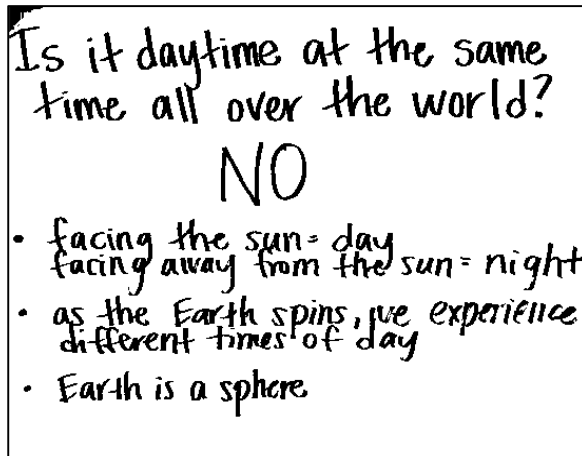 Is it daytime at the same
time all over the world?
NO
• facing the sun = day
facing away from the sun = night
• as the Earth spins, we experience
different times of day
• Earth is a sphere